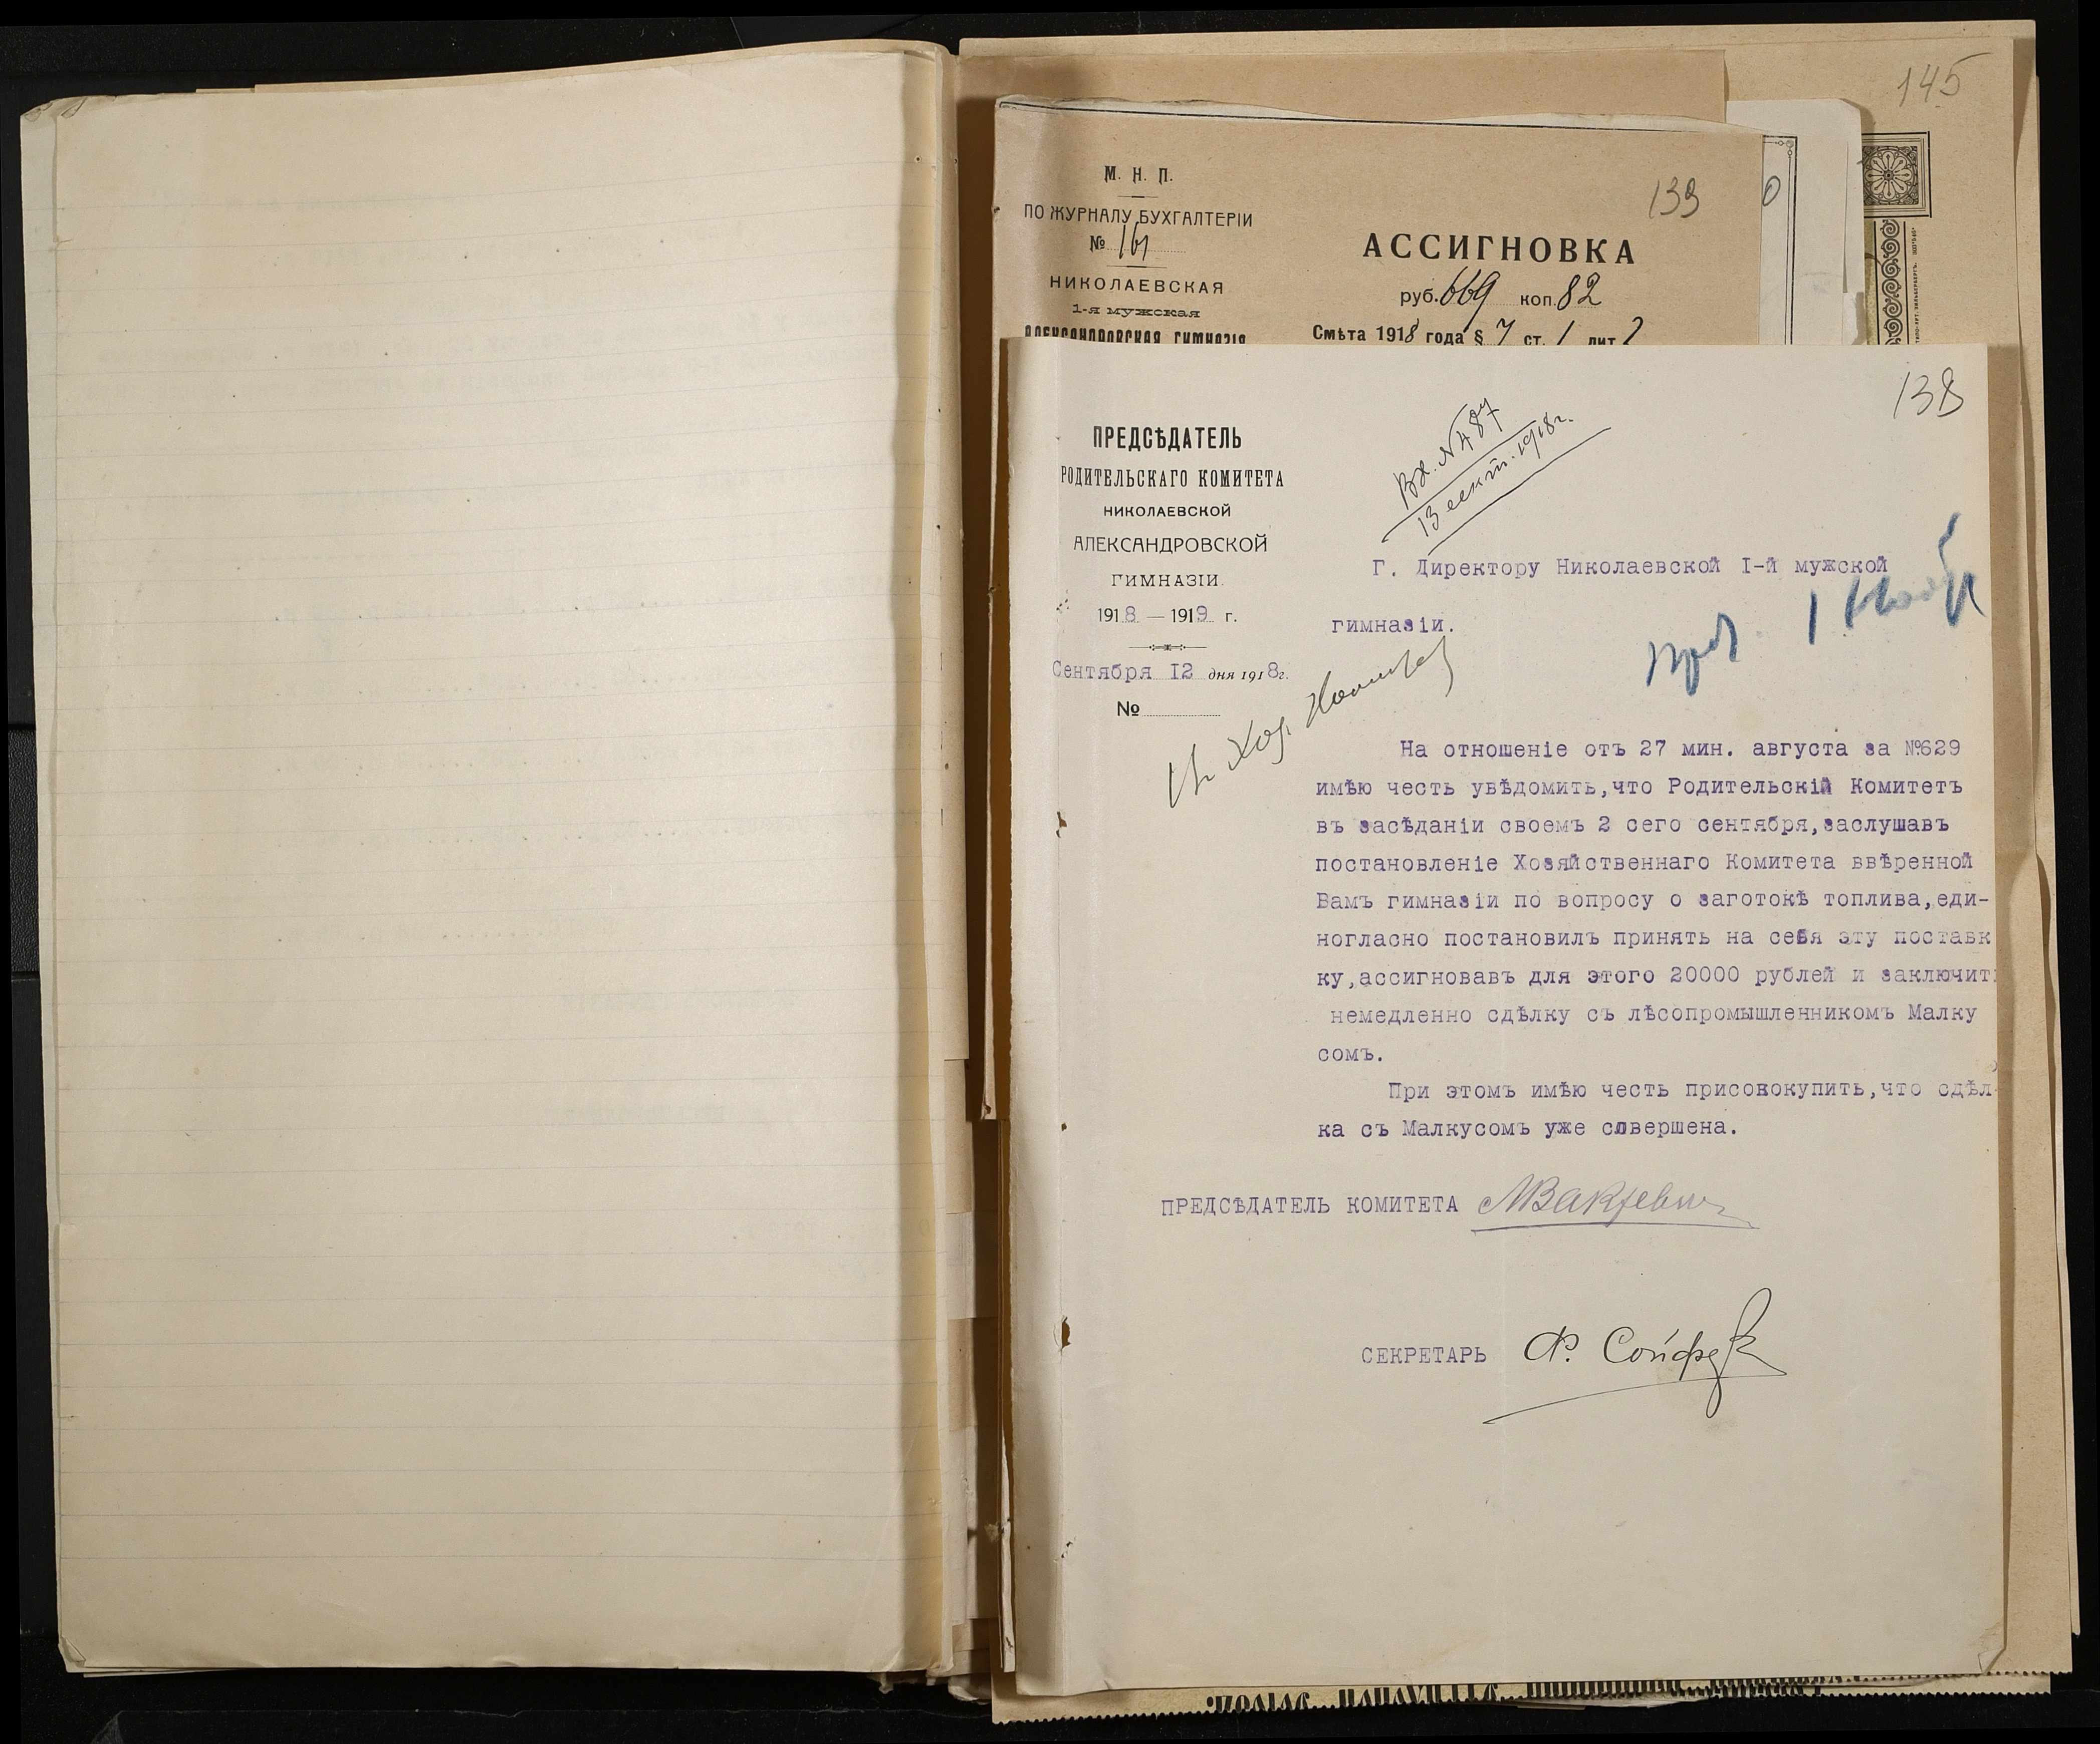 145
М. Н. П.
ПО ЖУРНАЛУ БУХГАЛТЕРІИ
№ 161
НИКОЛАЕВСКАЯ
1-я мужская
АЛЕКСАНДРОВСКАЯ ГИМНАЗІЯ
139
АССИГНОВКА
руб. 669 коп. 82
Смѣта 1918 года § 7 ст. 1 лит 2
138
ПРЕДСѢДАТЕЛЬ
РОДИТЕЛЬСКАГО КОМИТЕТА
НИКОЛАЕВСКОЙ
АЛЕКСАНДРОВСКОЙ
ГИМНАЗІИ.
1918 — 1919 г.
Сентября 12 дня 1918г.
№
Вх. № 487
13 сент. 1918 г.
Г. Директору Николаевской I-й мужской
гимназіи.
На отношеніе отъ 27 мин. августа за №629
имѣю честь увѣдомить,что Родительскій Комитетъ
въ засѣданіи своемъ 2 сего сентября,заслушавъ
постановленіе Хозяйственнаго Комитета ввѣренной
Вамъ гимназіи по вопросу о заготокѣ топлива,еди-
ногласно постановилъ принять на себя эту поставк
ку,ассигновавъ для этого 20000 рублей и заключит
немедленно сдѣлку съ лѣсопромышленникомъ Малку
сомъ.
При этомъ имѣю честь присовокупить,что сдѣл-
ка съ Малкусомъ уже совершена.
ПРЕДСѢДАТЕЛЬ КОМИТЕТА
СЕКРЕТАРЬ Ф.